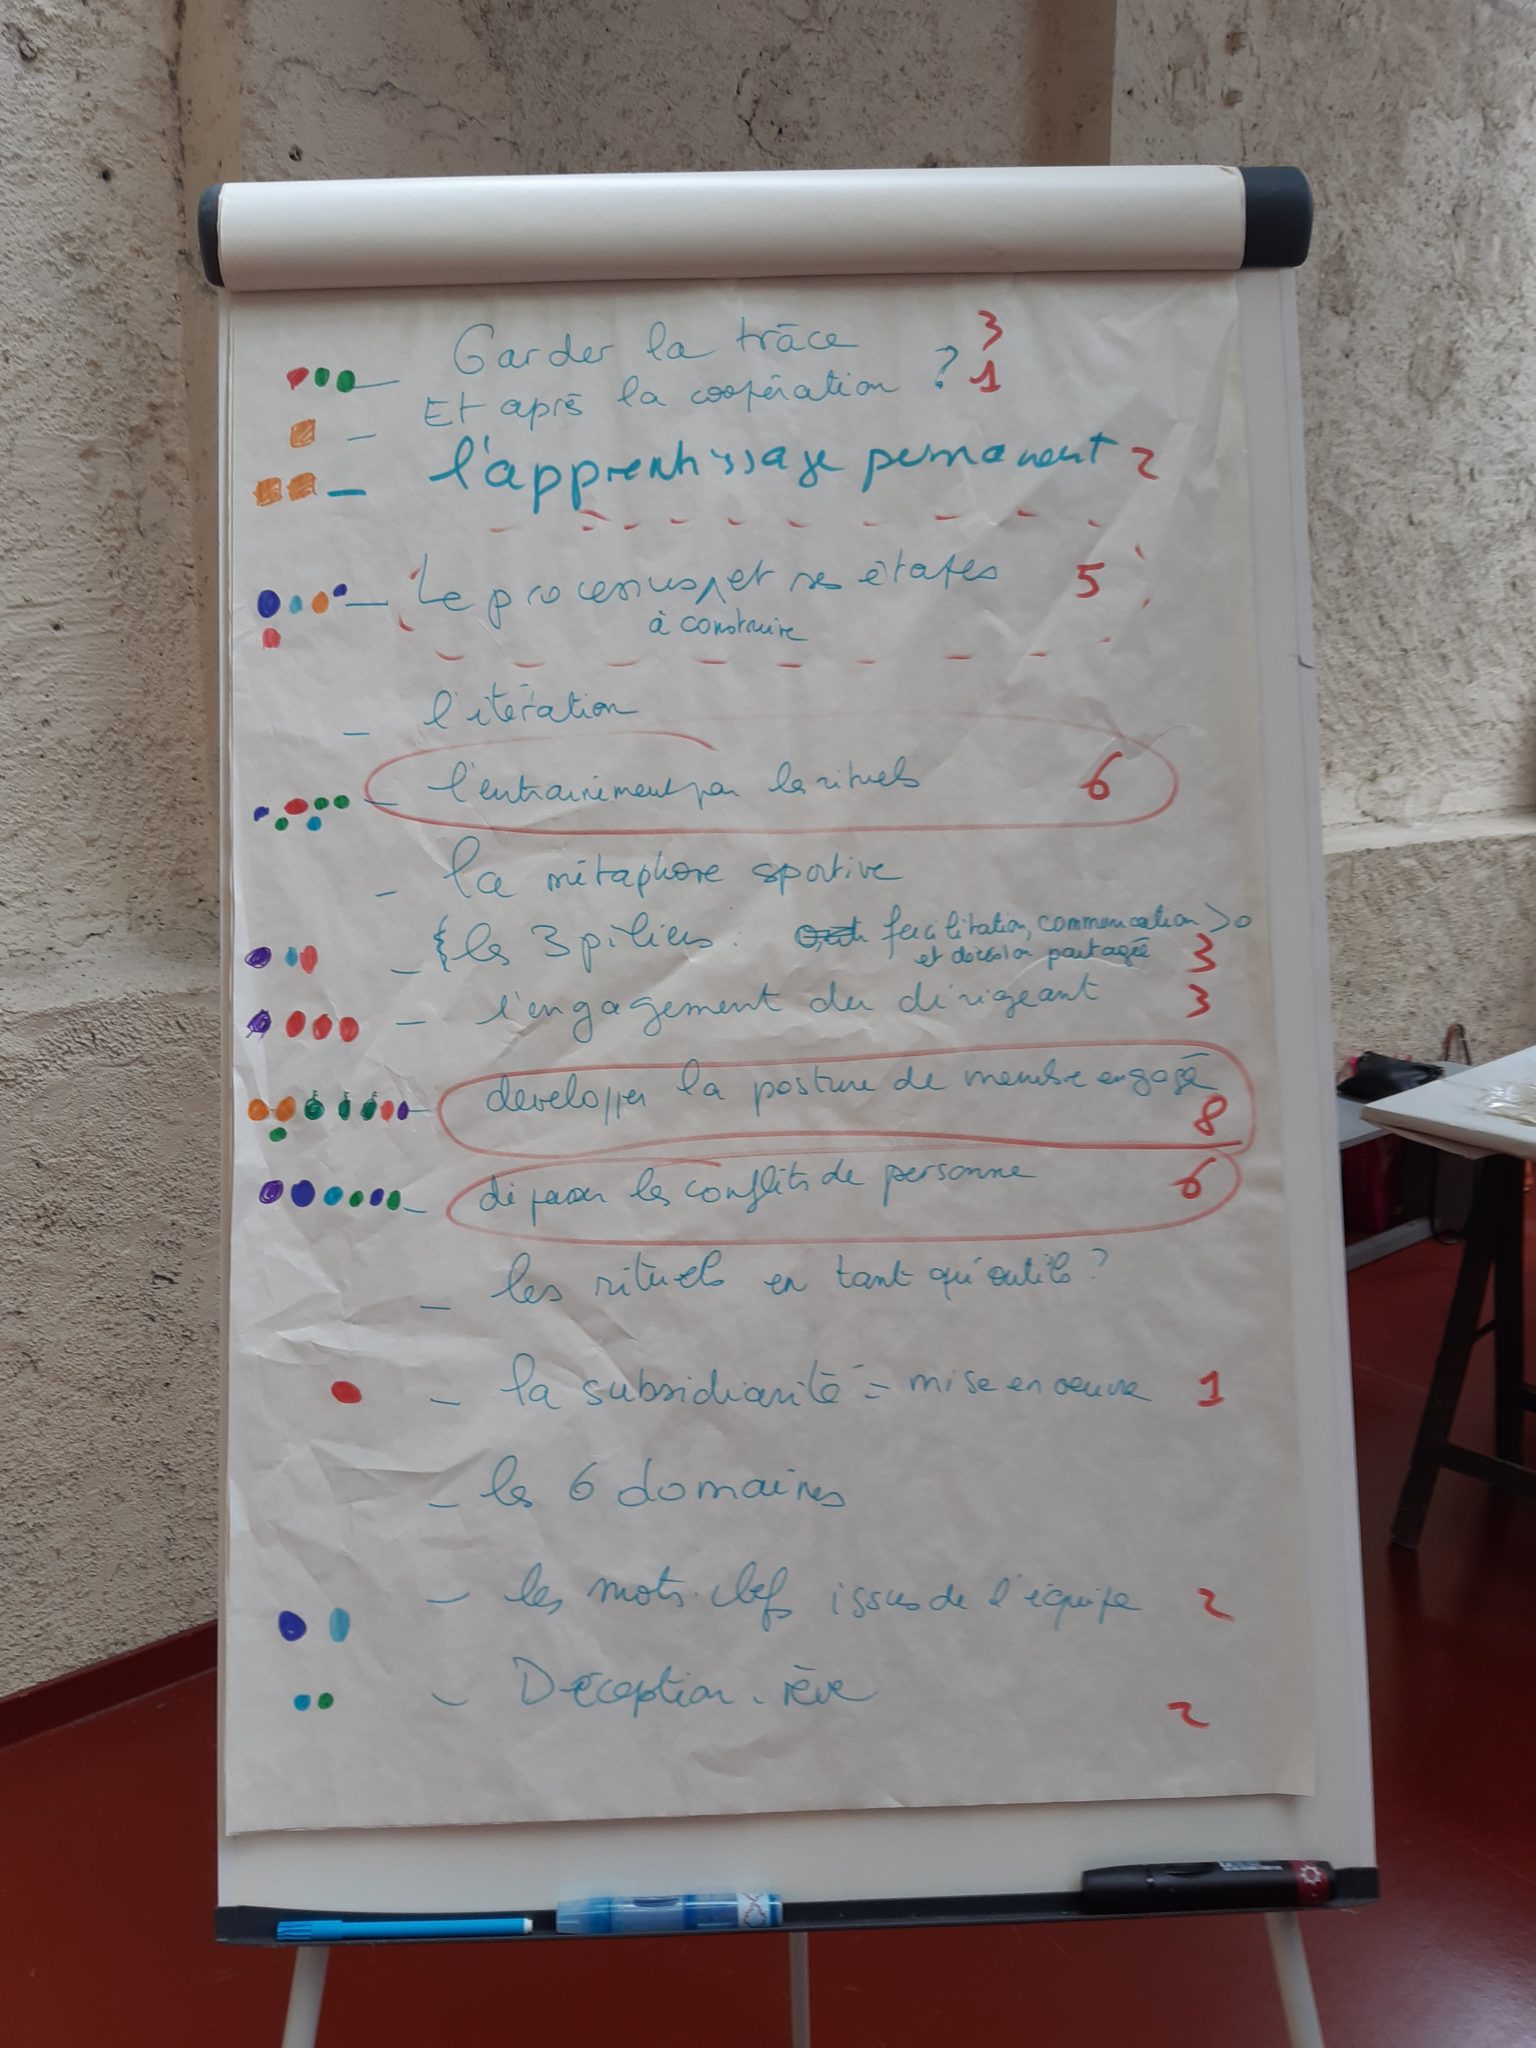 Garder la trâce 3
Et après la coopération ? 1
l'apprentissage permanent 2
Le processus, et ses étapes 5
à construire
l'itération
l'entrainement par les rituels 6
la métaphore sportive
les 3 piliers : facilitation, communication
et décision partagée 3
l'engagement du dirigeant 3
developper la posture de membre engagé
8
dépasser les conflits de personne 6
les rituels en tant qu'outils ?
la subsidiarité = mise en oeuvre 1
les 6 domaines
les mots-clefs issus de l'équipe 2
Déception - rêve
2